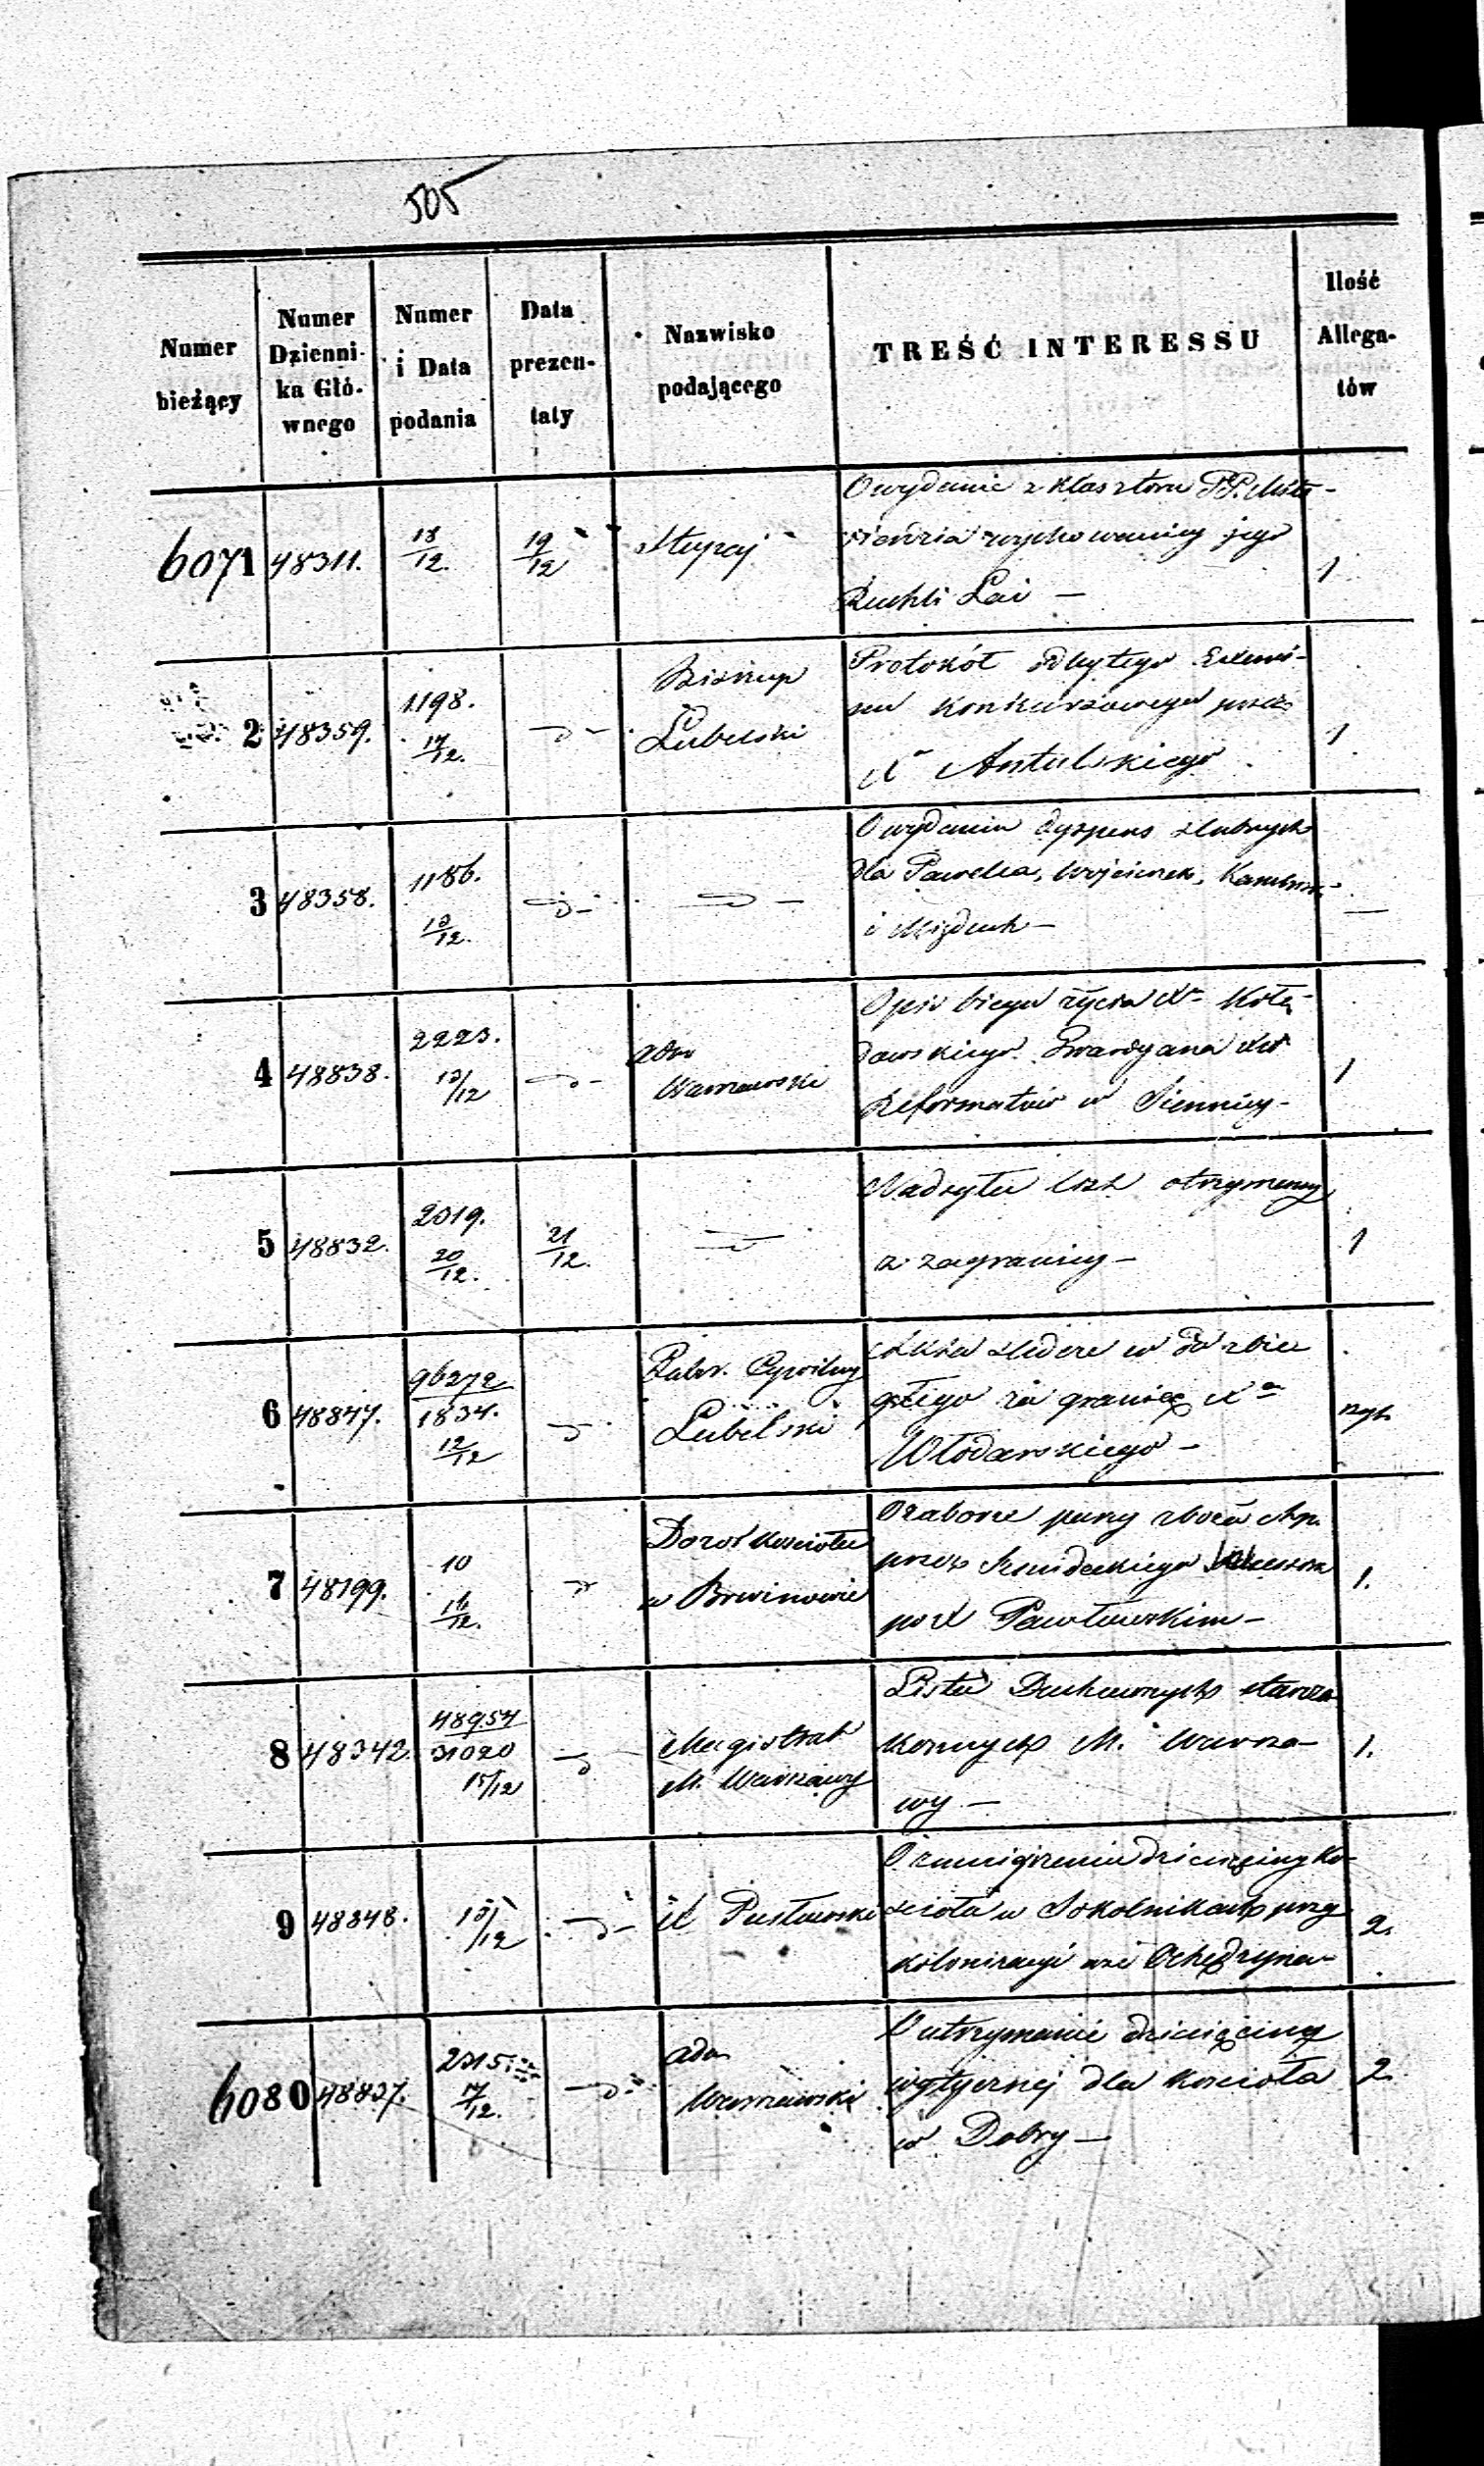 505
Numer bieżący
Numer Dzienni-ka Głó-wnego
Numer i Data podania
Data prezen-taty
Nazwisko podającego
TREŚĆ INTERESSU
Ilość Allega-tów
6071 48311. 18/12. 19/12
O wydanie z klasztoru PP. Miło-
sierdzia wychowanicy jego
Ruchli Lai —
1
2 48359. 1198. 17/12. —d—
Biskup
Lubelski
Protokół odbytego Exami-
nu konkursowego przez
X Antulskiego
1
3 48358. 1186. 13/12. —d— —d—
O wydanie dyspens ślubnych
dla Pawelca, Wojciech,
i —
—
4 48838. 2223. 13/12 —d—
Adm
Warszawski
Opis biegu życia Xa Kołę-
dowskiego Gwardyana XX
Reformatów w Siennicy —
1
5 48832. 2319. 20/12. 21/12. —d—
Nadsyła list otrzymany
z zagranicy —
1
6 48847. 96272/1834. 12/12 —d—
Gubr. Cywilny
Lubelski
Akta śledcze w
za granicę Xa
Włodarskiego —
7 48199. 10 16/12. —d—
Dozór kościoła
w Brwinowie
O zaborze zboża
przez
po X Pawłowskim —
1.
8 48342. 48954/31020 15/12 —d—
Magistrat
M. Warszawy
Lista Duchownych starоza-
konnych M. Warsza-
wy —
1.
9 48348. 13/12 —d—
X Pustowski
dziesięciny ko-
ścioła w Sokolnikach przy
kolonizacyi wsi Ochędzyna —
2.
6080 48837. 2315. 17/12. —d—
Adm
Warszawski
O utrzymanie dziesięciny
wytycznej dla kościoła
w Dobry —
2.